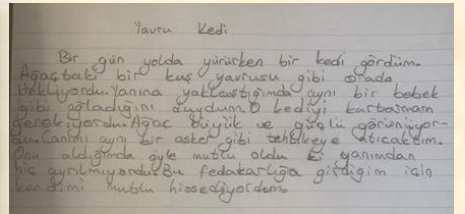 Yavru Kedi
Bir gün yolda yürürken bir kedi gördüm.
Ağaçtaki bir kuş yavrusu gibi orada
bekliyordu. Yanına yaklaştığımda aynı bir bebek
gibi ağladığını duydum. O kediyi kurtarmam
gerekiyordu. Ağaç büyük ve güçlü görünüyor-
du. Canımı aynı bir asker gibi tehlikeye atıcaktım.
Onu aldığımda öyle mutlu oldu ki yanımdan
hiç ayrılmıyordu. Bu fedakarlığa girdiğim için
kendimi mutlu hissediyordum.